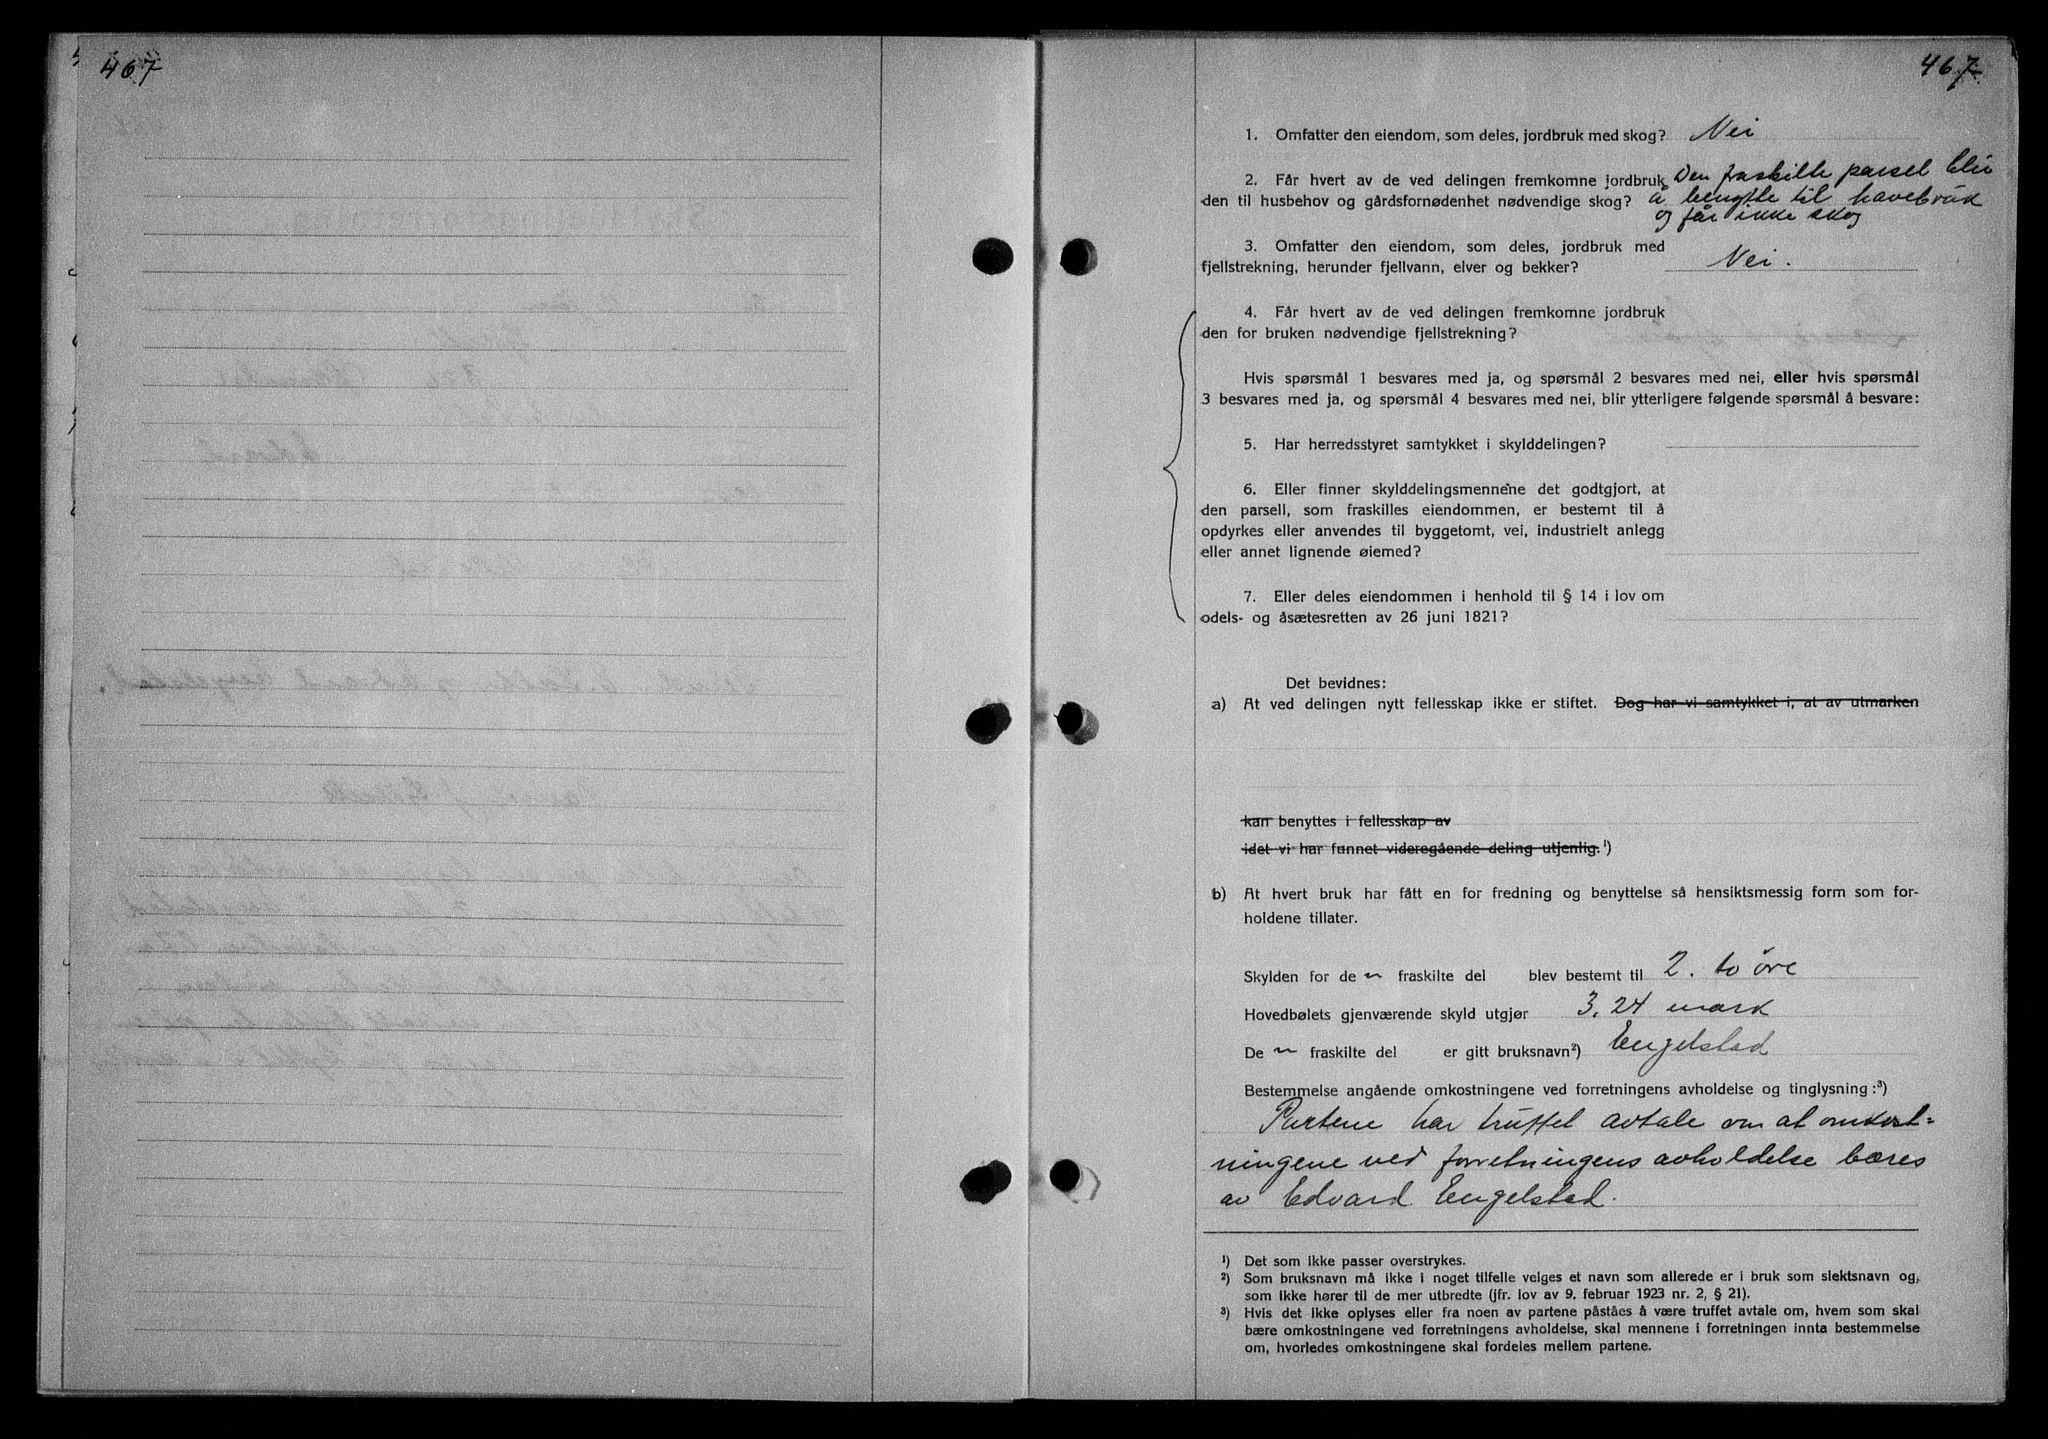 467
467
1. Omfatter den eiendom, som deles, jordbruk med skog? Nei
2. Får hvert av de ved delingen fremkomne jordbruk Den fraskilte parsel blir
den til husbehov og gårdsfornødenhet nødvendige skog? å benytte til havebruk
og får ikke skog
3. Omfatter den eiendom, som deles, jordbruk med
fjellstrekning, herunder fjellvann, elver og bekker? Nei.
4. Får hvert av de ved delingen fremkomne jordbruk
den for bruken nødvendige fjellstrekning?
Hvis spørsmål 1 besvares med ja, og spørsmål 2 besvares med nei, eller hvis spørsmål
3 besvares med ja, og spørsmål 4 besvares med nei, blir ytterligere følgende spørsmål å besvare:
5. Har herredsstyret samtykket i skylddelingen?
6. Eller finner skylddelingsmennene det godtgjort, at
den parsell, som fraskilles eiendommen, er bestemt til å
opdyrkes eller anvendes til byggetomt, vei, industrielt anlegg
eller annet lignende øiemed?
7. Eller deles eiendommen i henhold til § 14 i lov om
odels- og åsætesretten av 26 juni 1821?
Det bevidnes:
a) At ved delingen nytt fellesskap ikke er stiftet. Dog har vi samtykket i, at av utmarken
kan benyttes i fellesskap av
idet vi har funnet videregående deling utjenlig.¹)
b) At hvert bruk har fått en for fredning og benyttelse så hensiktsmessig form som for-
holdene tillater.
Skylden for de n fraskilte del blev bestemt til 2. to öre
Hovedbølets gjenværende skyld utgjør 3,24 mark
De n fraskilte del er gitt bruksnavn²) Engelstad
Bestemmelse angående omkostningene ved forretningens avholdelse og tinglysning:³)
Partene har truffet avtale om at omkost-
ningene ved forretningens avholdelse bæres
av Edvard Engelstad.
¹) Det som ikke passer overstrykes.
²) Som bruksnavn må ikke i noget tilfelle velges et navn som allerede er i bruk som slektsnavn og,
som ikke hører til de mer utbredte (jfr. lov av 9. februar 1923 nr. 2, § 21).
³) Hvis det ikke oplyses eller fra noen av partene påståes å være truffet avtale om, hvem som skal
bære omkostningene ved forretningens avholdelse, skal mennene i forretningen innta bestemmelse
om, hvorledes omkostningene skal fordeles mellem partene.